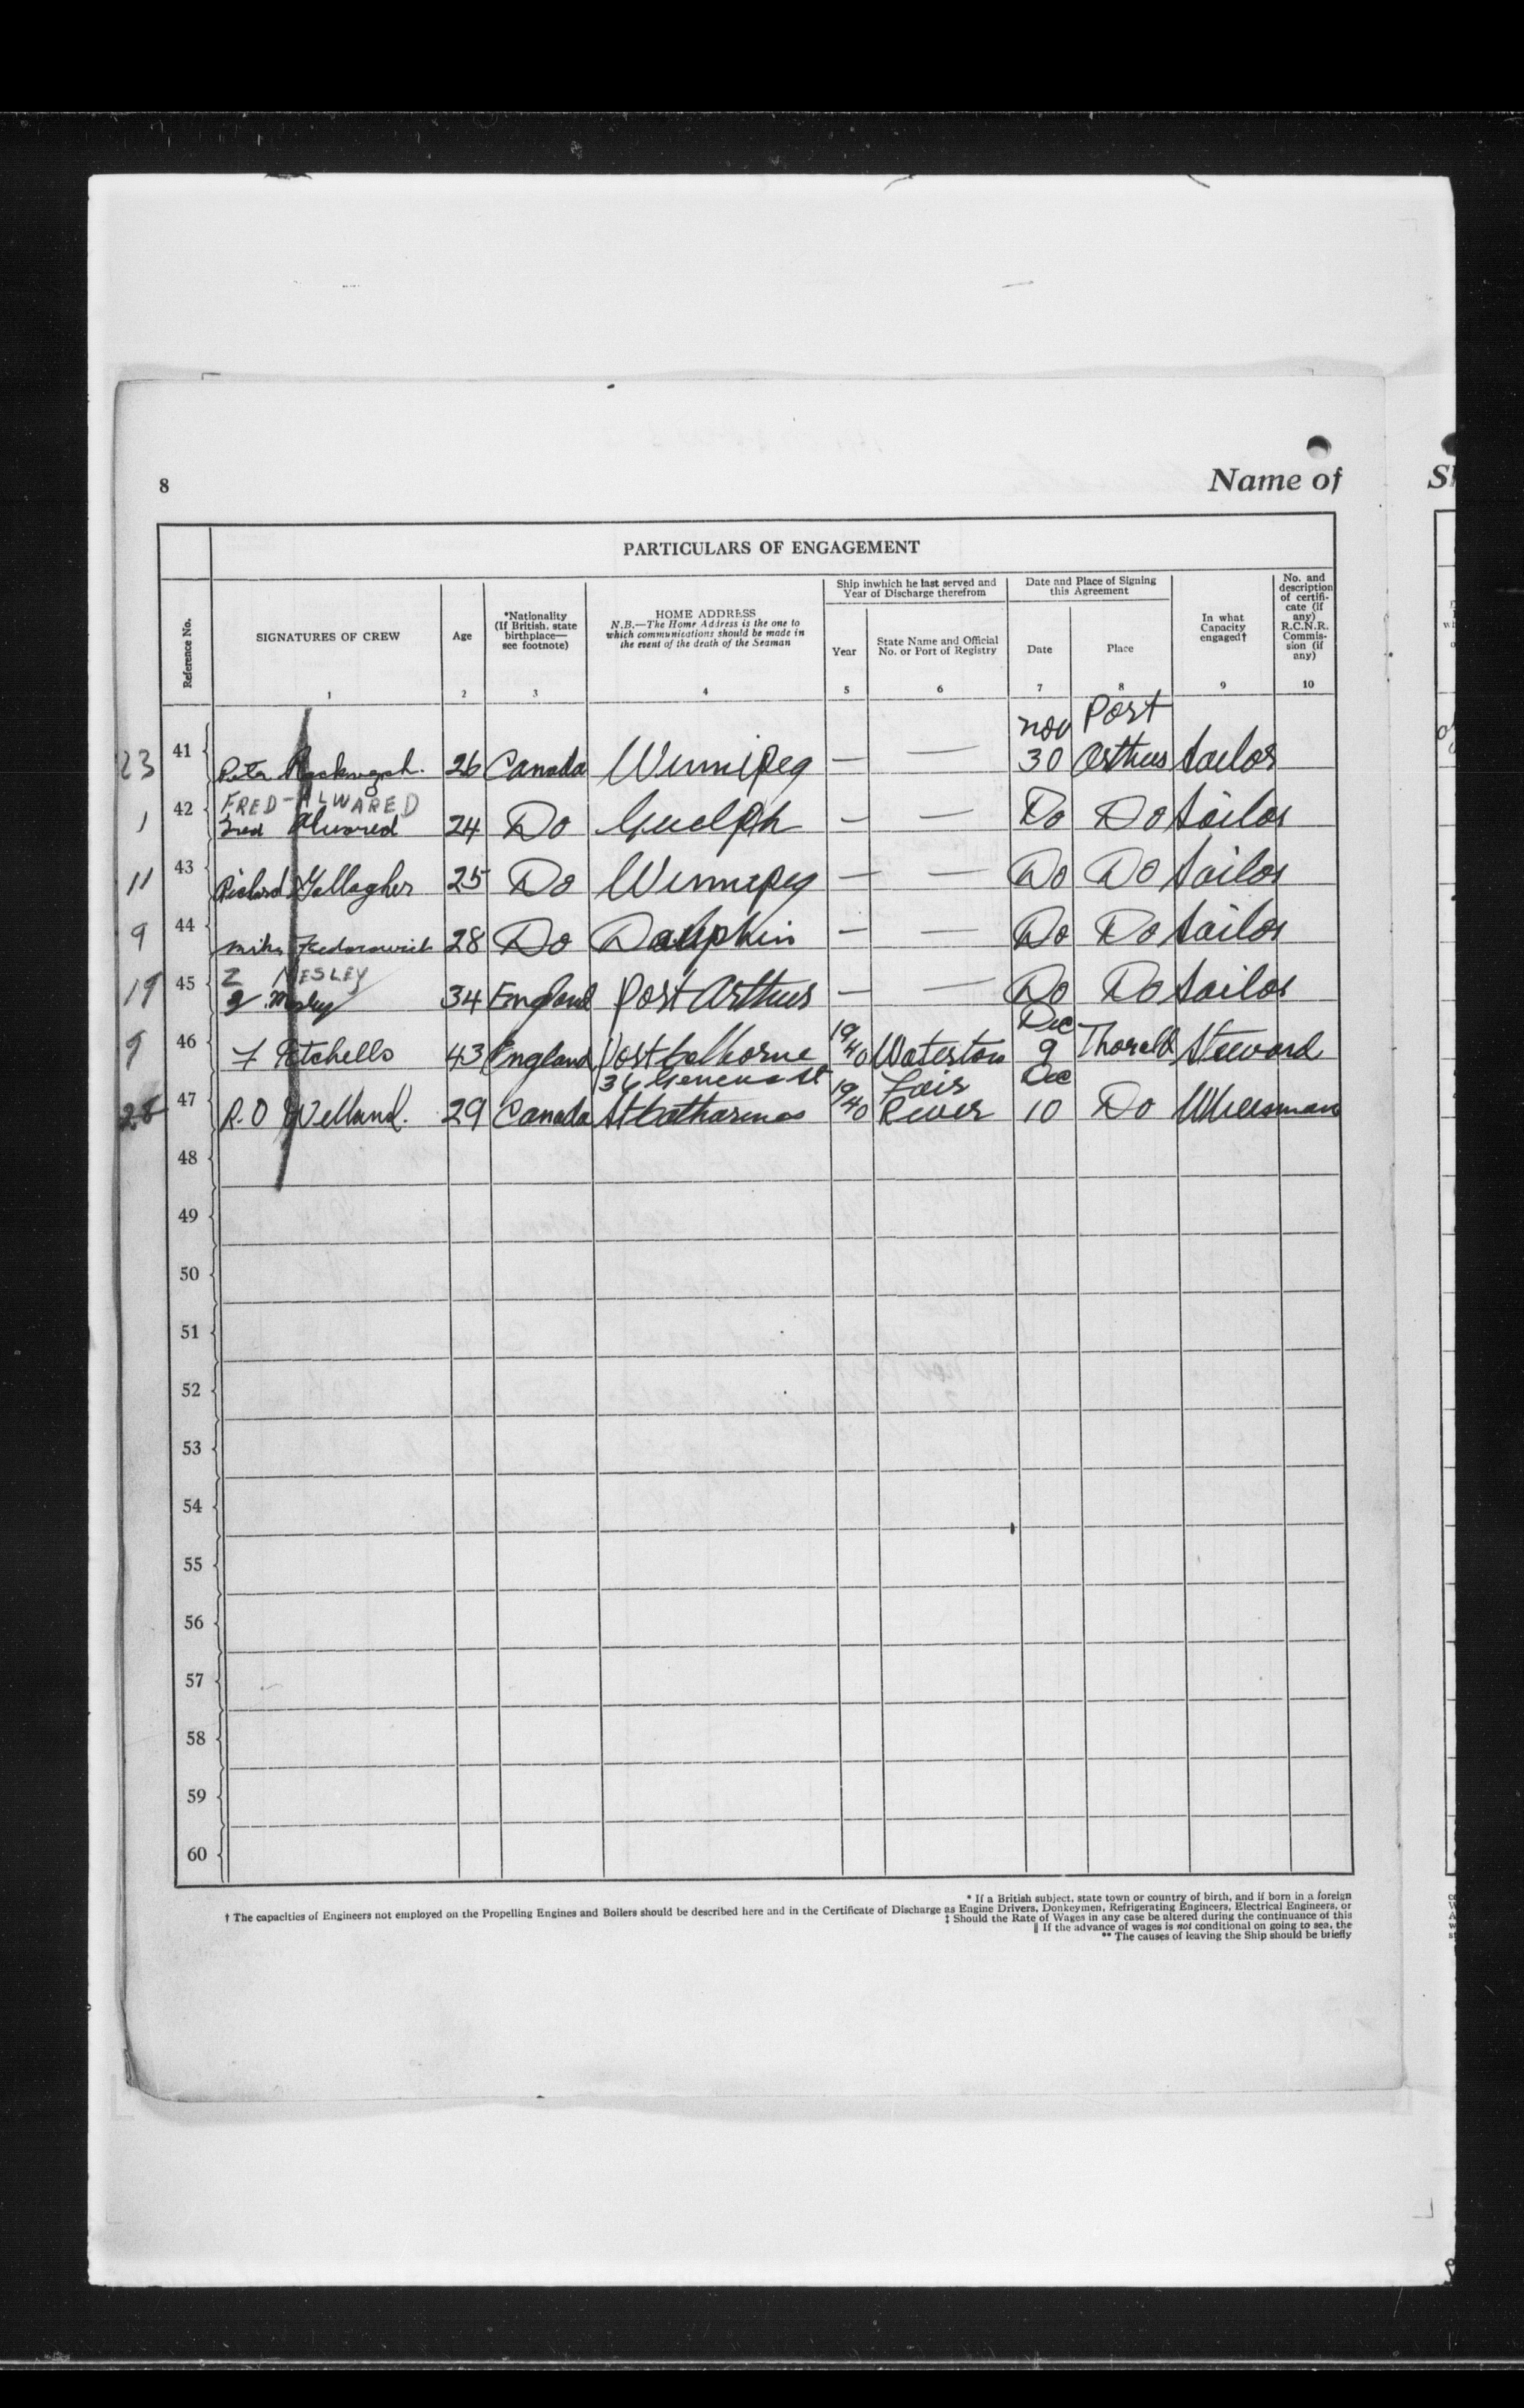 8
Name of
PARTICULARS OF ENGAGEMENT
Reference No.
SIGNATURES OF CREW
1
Age
2
*Nationality
(If British, state
birthplace—
see footnote)
3
HOME ADDRESS
N.B.—The Home Address is the one to
which communications should be made in
the event of the death of the Seaman
4
Ship inwhich he last served and
Year of Discharge therefrom
Year
5
State Name and Official
No. or Port of Registry
6
Date and Place of Signing
this Agreement
Date
7
Place
8
In what
Capacity
engaged†
9
No. and
description
of certifi-
cate (if
any)
R.C.N.R.
Commis-
sion (if
any)
10
nov Port
23 41 Peter 26 Canada Winnipeg — — 30 Arthur Sailor
FRED-ALWARED
1 42 Fred Alwared 24 Do Guelph — — Do Do Sailor
11 43 Richard Gallagher 25 Do Winnipeg — — Do Do Sailor
9 44 Mike Fedorowich 28 Do Dauphin — — Do Do Sailor
Z MESLEY
19 45 Z Mesley 34 England Port Arthur — — Do Do Sailor
Dec
9 46 F 43 England Port Colborne 19/40 Waterton 9 Thorold Steward
36 Geneva St Fair Dec
28 47 R. O Welland. 29 Canada St Catharines 19/40 River 10 Do Wheelsman
48
49
50
51
52
53
54
55
56
57
58
59
60
* If a British subject, state town or country of birth, and if born in a foreign
† The capacities of Engineers not employed on the Propelling Engines and Boilers should be described here and in the Certificate of Discharge as Engine Drivers, Donkeymen, Refrigerating Engineers, Electrical Engineers, or
‡ Should the Rate of Wages in any case be altered during the continuance of this
‖ If the advance of wages is not conditional on going to sea, the
** The causes of leaving the Ship should be briefly